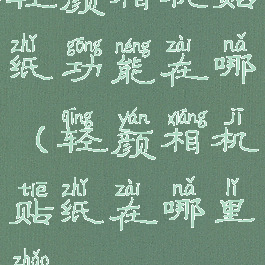 轻颜相机贴
zhǐ gōng néng zài nǎ
纸功能在哪
qīng yán xiàng jī
（轻颜相机
tiē zhǐ zài nǎ lǐ
贴纸在哪里
zhǎo